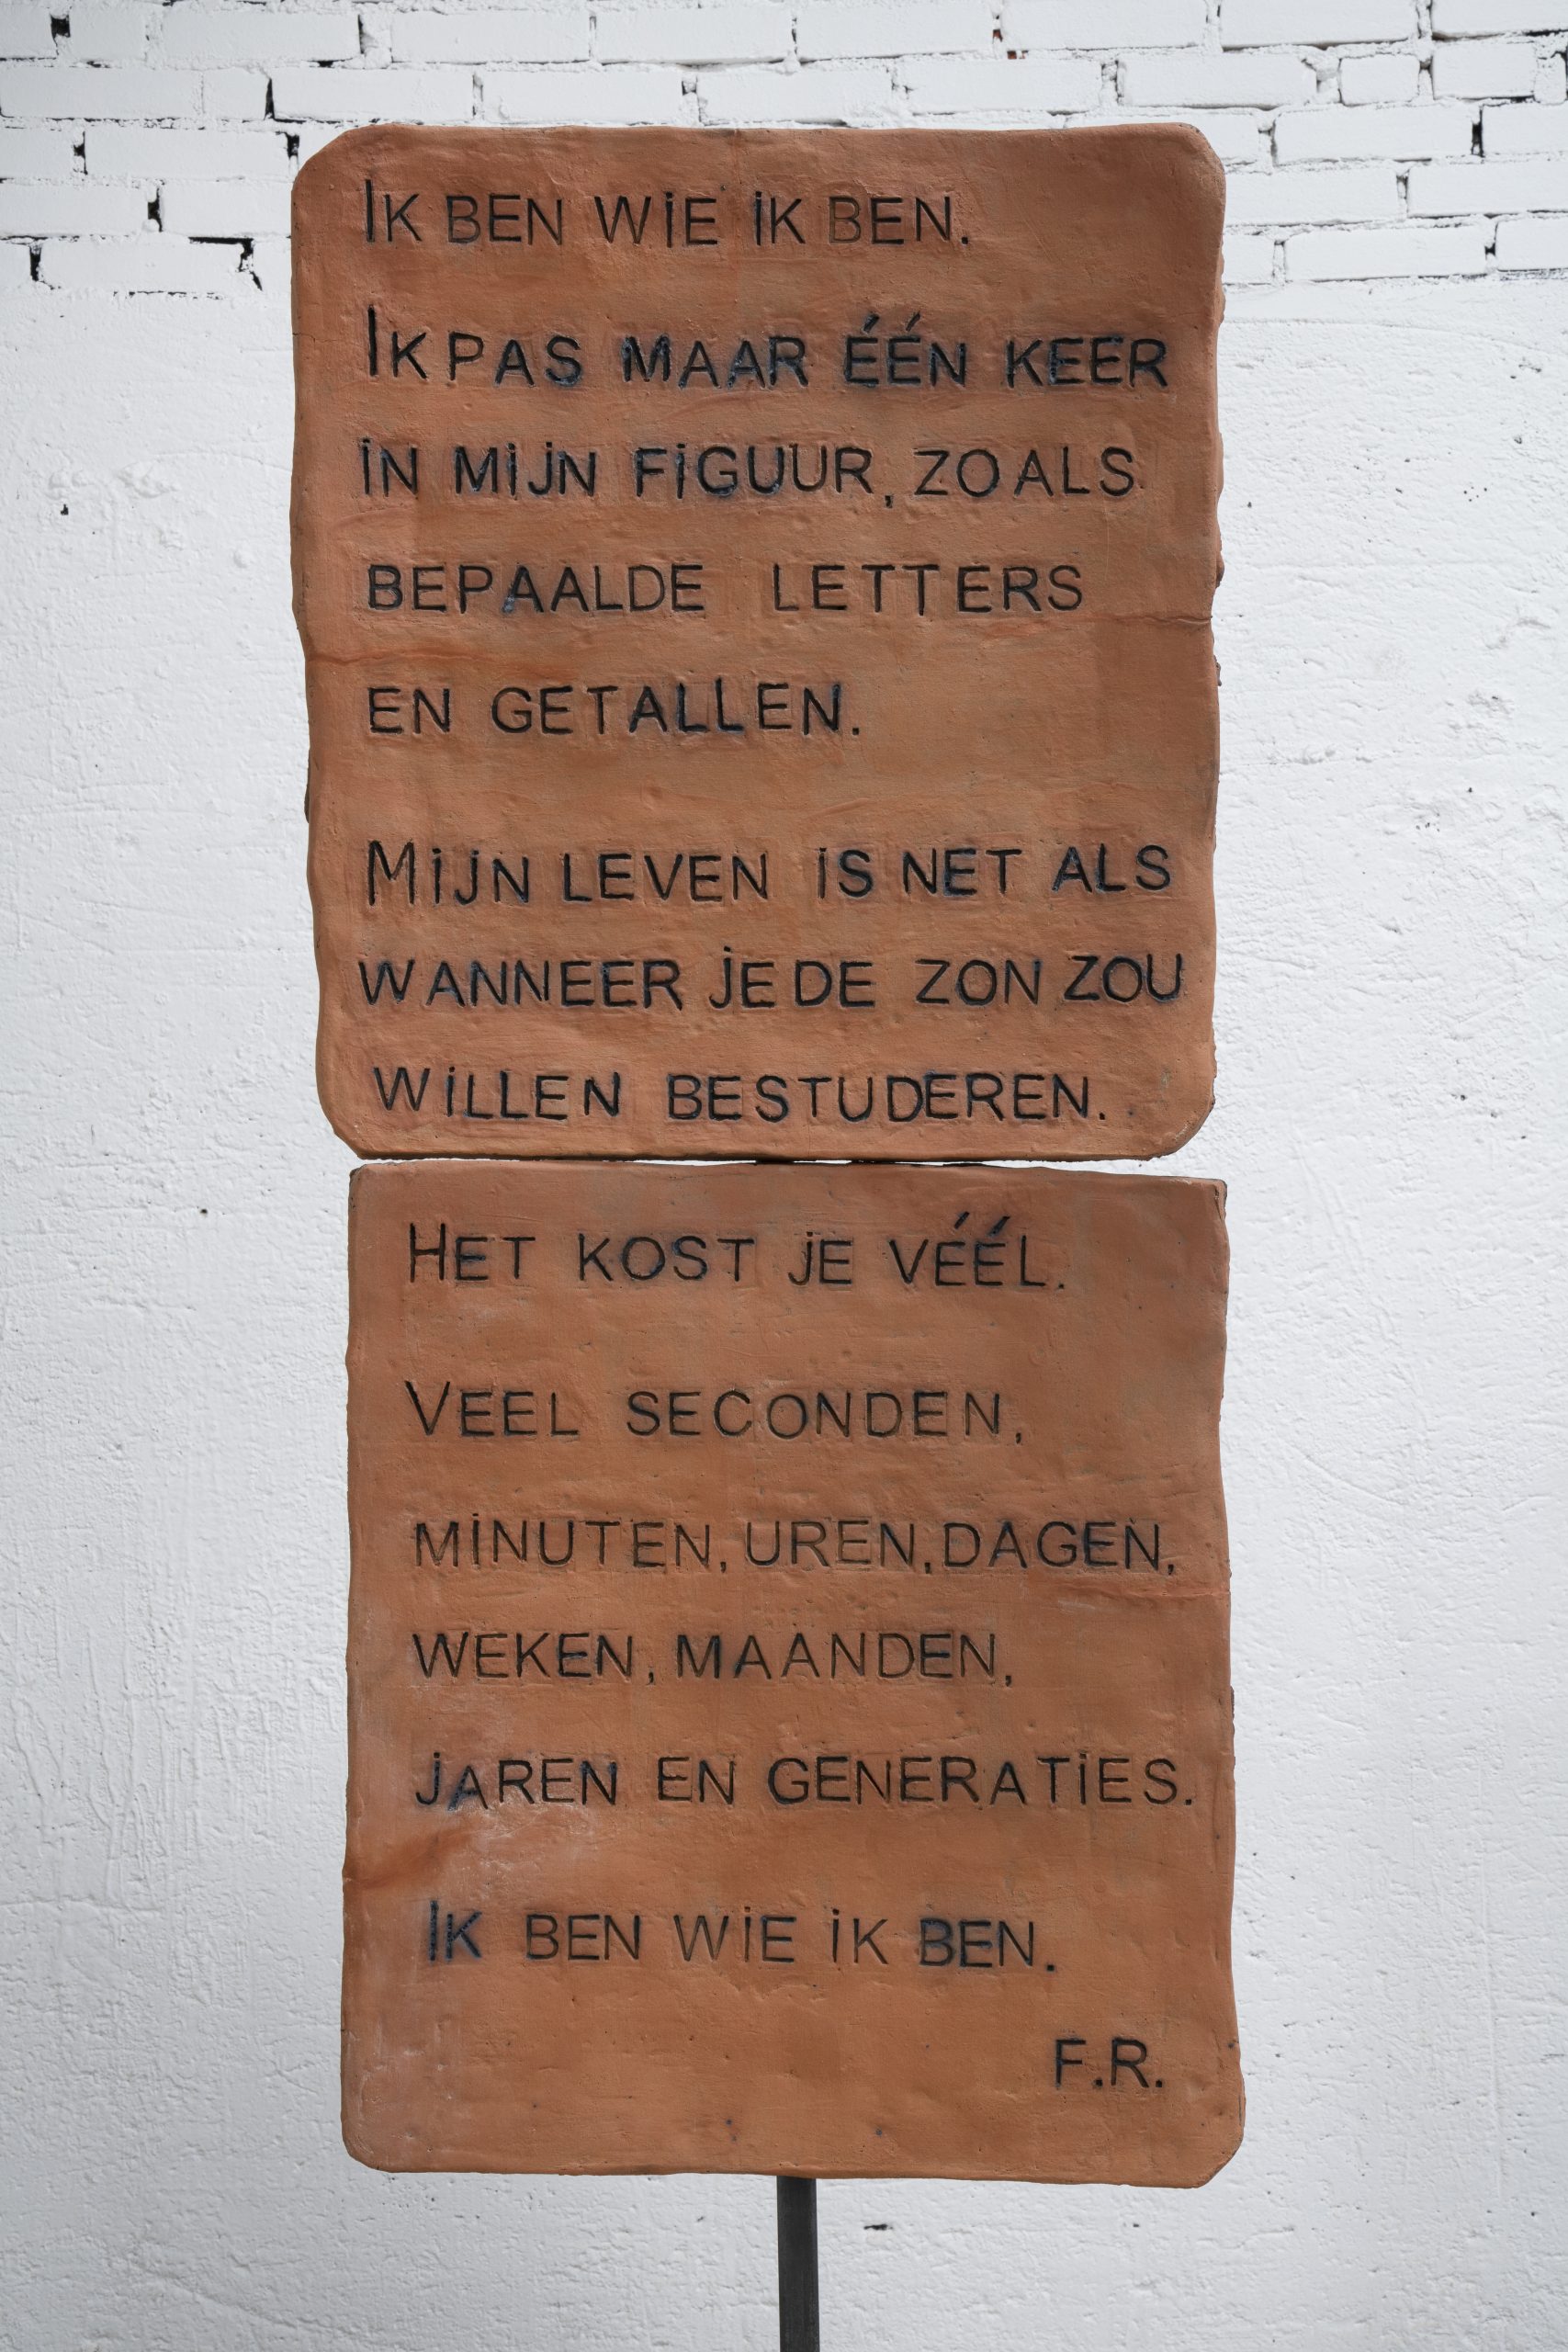 Ik ben wie ik ben.
Ik pas maar één keer
in mijn figuur, zoals
bepaalde letters
en getallen.
Mijn leven is net als
wanneer je de zon zou
willen bestuderen.
Het kost je véél.
Veel seconden,
minuten, uren, dagen,
weken, maanden,
jaren en generaties.
Ik ben wie ik ben.
F.R.